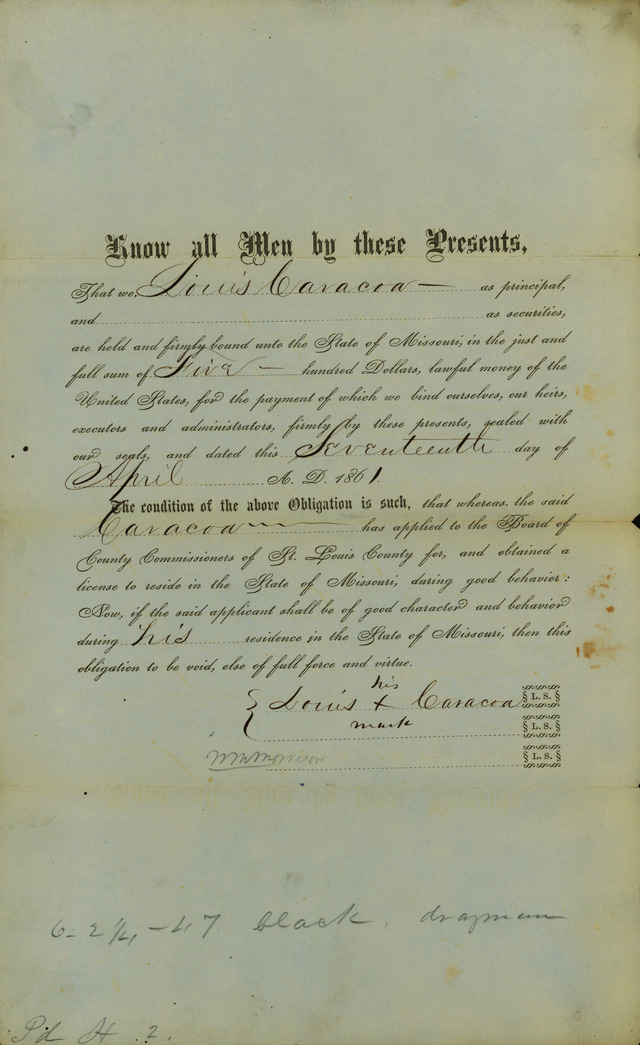 Know all Men by these Presents,
That we, Louis Caracoa — as principal,
and as securities,
are held and firmly bound unto the State of Missouri, in the just and
full sum of Five — hundred Dollars, lawful money of the
United States, for the payment of which we bind ourselves, our heirs,
executors and administrators, firmly by these presents, sealed with
our seals, and dated this Seventeenth day of
April A. D. 1861.
The condition of the above Obligation is such, that whereas, the said
Caracoa — has applied to the Board of
County Commissioners of St. Louis County for, and obtained a
license to reside in the State of Missouri, during good behavior:
Now, if the said applicant shall be of good character and behavior
during his residence in the State of Missouri, then this
obligation to be void, else of full force and virtue.
his
Louis x Caracoa L. S.
mark
L. S.
Wm Morrison L. S.
6- 2 1/4, - 47 black, drayman
Pd H 2.